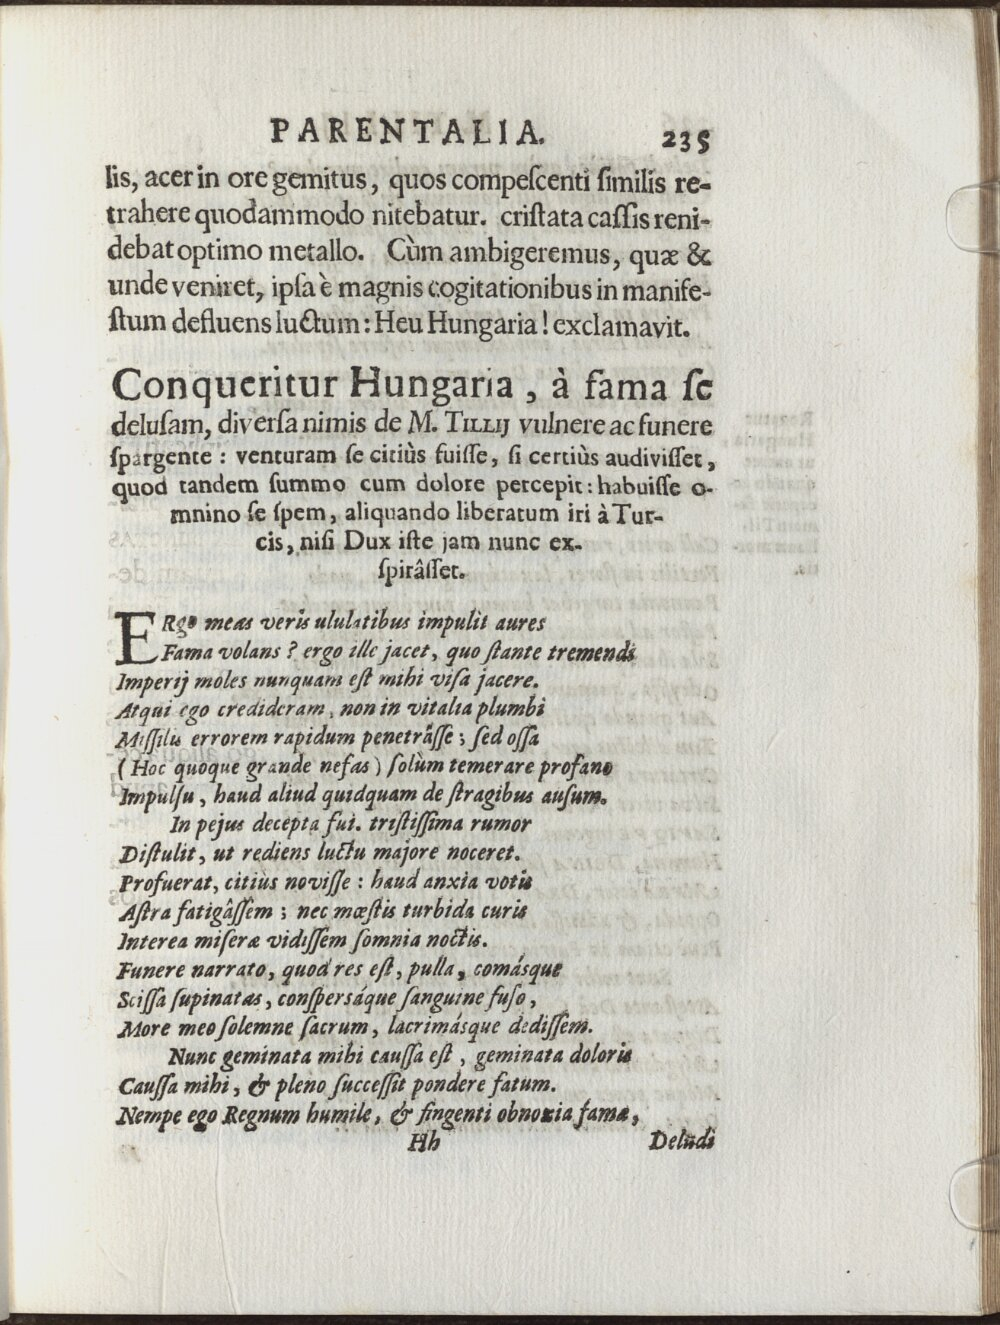 PARENTALIA. 235
lis, acer in ore gemitus, quos compeſcenti ſimilis re-
trahere quodammodo nitebatur. criſtata caſſis reni-
debat optimo metallo. Cùm ambigeremus, quæ &
unde veniret, ipſa è magnis cogitationibus in manife-
ſtum defluens luctum: Heu Hungaria! exclamavit.
Conqueritur Hungaria, à fama ſe
deluſam, diverſa nimis de M. TILLIJ vulnere ac funere
ſpargente: venturam ſe citiùs fuiſſe, ſi certiùs audiviſſet,
quod tandem ſummo cum dolore percepit: habuiſſe o-
mnino ſe ſpem, aliquando liberatum iri à Tur-
cis, niſi Dux iſte jam nunc ex-
ſpirâſſet.
ERgo meas veris ululatibus impulit aures
Fama volans? ergo ille jacet, quo ſtante tremendi
Imperij moles nunquam eſt mihi viſa jacere.
Atqui ego credideram, non in vitalia plumbi
Miſſilis errorem rapidum penetrâſſe; ſed oſſa
(Hoc quoque grande nefas) ſolùm temerare profano
Impulſu, haud aliud quidquam de ſtragibus auſum.
In pejus decepta fui. triſtiſſima rumor
Diſtulit, ut rediens luctu majore noceret.
Profuerat, citiùs noviſſe: haud anxia votis
Aſtra fatigâſſem; nec mœſtis turbida curis
Interea miſeræ vidiſſem ſomnia noctis.
Funere narrato, quod res eſt, pulla, comásque
Sciſſa ſupinatas, conſperſáque ſanguine fuſo,
More meo ſolemne ſacrum, lacrimásque dediſſem.
Nunc geminata mihi cauſſa eſt, geminata doloris
Cauſſa mihi, & pleno ſucceſſit pondere fatum.
Nempe ego Regnum humile, & fingenti obnoxia famæ,
Hh Deludi